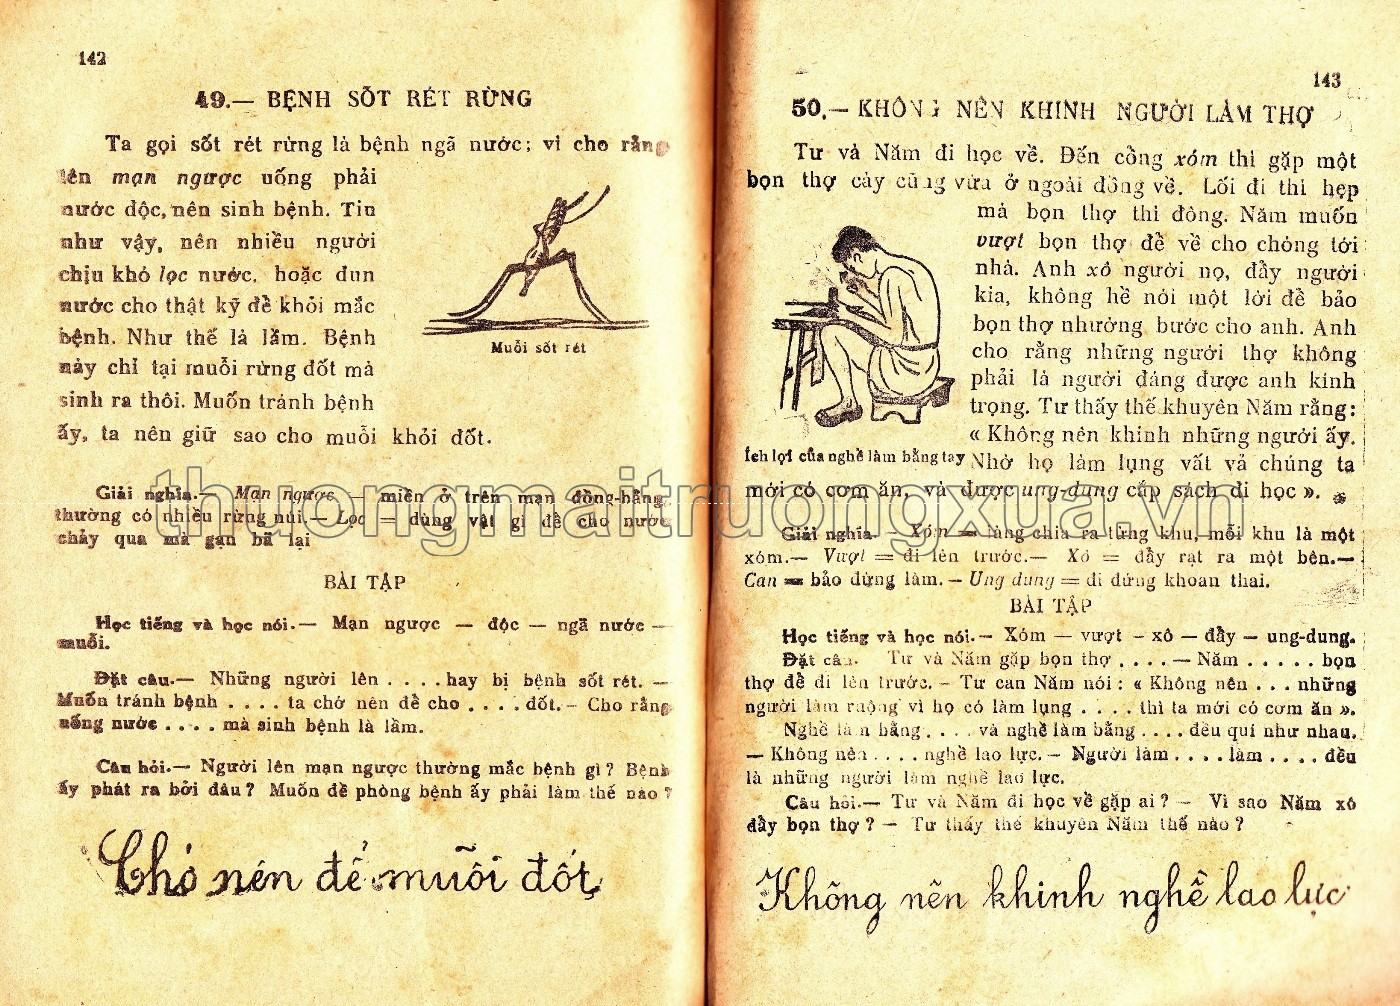 142
49.— BỆNH SỐT RÉT RỪNG
Ta gọi sốt rét rừng là bệnh ngã nước; vì cho rằng
lên mạn ngược uống phải
nước độc, nên sinh bệnh. Tin
như vậy, nên nhiều người
chịu khó lọc nước, hoặc đun
nước cho thật kỹ để khỏi mắc
bệnh. Như thế là lầm. Bệnh
này chỉ tại muỗi rừng đốt mà
sinh ra thôi. Muốn tránh bệnh
ấy, ta nên giữ sao cho muỗi khỏi đốt.
Muỗi sốt rét
Giải nghĩa.— Mạn ngược = miền ở trên mạn đồng-bằng,
thường có nhiều rừng núi.— Lọc = dùng vật gì để cho nước
chảy qua mà gạn bã lại
BÀI TẬP
Học tiếng và học nói.— Mạn ngược — độc — ngã nước —
muỗi.
Đặt câu.— Những người lên . . . . hay bị bệnh sốt rét. —
Muốn tránh bệnh . . . . ta chớ nên để cho . . . . đốt.— Cho rằng
uống nước . . . . mà sinh bệnh là lầm.
Câu hỏi.— Người lên mạn ngược thường mắc bệnh gì ? Bệnh
ấy phát ra bởi đâu ? Muốn đề phòng bệnh ấy phải làm thế nào ?
Chớ nên để muỗi đốt
143
50.— KHÔNG NÊN KHINH NGƯỜI LÀM THỢ
Tư và Năm đi học về. Đến cổng xóm thì gặp một
bọn thợ cày cũng vừa ở ngoài đồng về. Lối đi thì hẹp
mà bọn thợ thì đông. Năm muốn
vượt bọn thợ để về cho chóng tới
nhà. Anh xô người nọ, đẩy người
kia, không hề nói một lời để bảo
bọn thợ nhường bước cho anh. Anh
cho rằng những người thợ không
phải là người đáng được anh kính
trọng. Tư thấy thế khuyên Năm rằng:
« Không nên khinh những người ấy.
Nhờ họ làm lụng vất vả chúng ta
mới có cơm ăn, và được ung-dung cắp sách đi học ».
Ích lợi của nghề làm bằng tay
Giải nghĩa.— Xóm = làng chia ra từng khu, mỗi khu là một
xóm.— Vượt = đi lên trước.— Xô = đẩy rạt ra một bên.—
Can = bảo đừng làm.— Ung dung = đi đứng khoan thai.
BÀI TẬP
Học tiếng và học nói.— Xóm — vượt — xô — đẩy — ung-dung.
Đặt câu. Tư và Năm gặp bọn thợ . . . . — Năm . . . . . bọn
thợ để đi lên trước.— Tư can Năm nói : « Không nên . . . những
người làm ruộng vì họ có làm lụng . . . . thì ta mới có cơm ăn ».
Nghề làm bằng . . . . và nghề làm bằng . . . . đều quí như nhau.
— Không nên . . . . nghề lao lực.— Người làm . . . . làm . . . . đều
là những người làm nghề lao lực.
Câu hỏi.— Tư và Năm đi học về gặp ai ? — Vì sao Năm xô
đẩy bọn thợ ? — Tư thấy thế khuyên Năm thế nào ?
Không nên khinh nghề lao lực
thuongmaitruongxua.vn